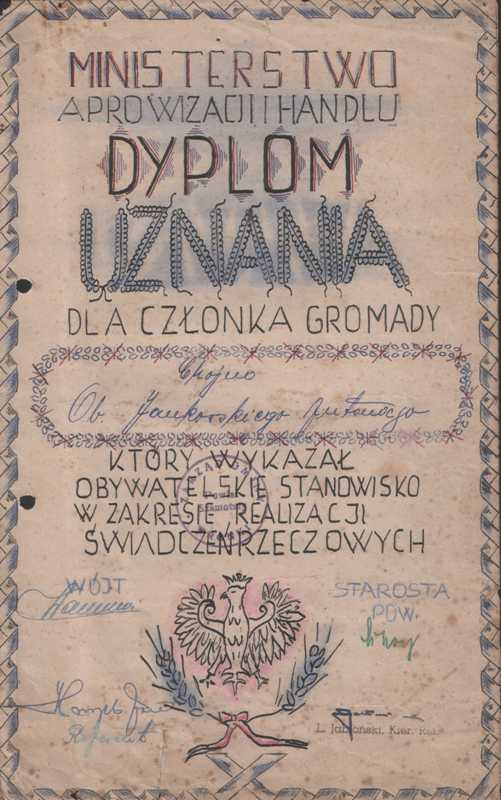 MINISTERSTWO
APROWIZACJI I HANDLU
DYPLOM
UZNANIA
DLA CZŁONKA GROMADY
Chojno
Ob Jankowskiego Antoniego
KTÓRY WYKAZAŁ
OBYWATELSKIE STANOWISKO
W ZAKRESIE REALIZACJI
ŚWIADCZEŃ RZECZOWYCH
WÓJT
STAROSTA
POW.
Referent
L. Jabłoński, Kier. Ref.